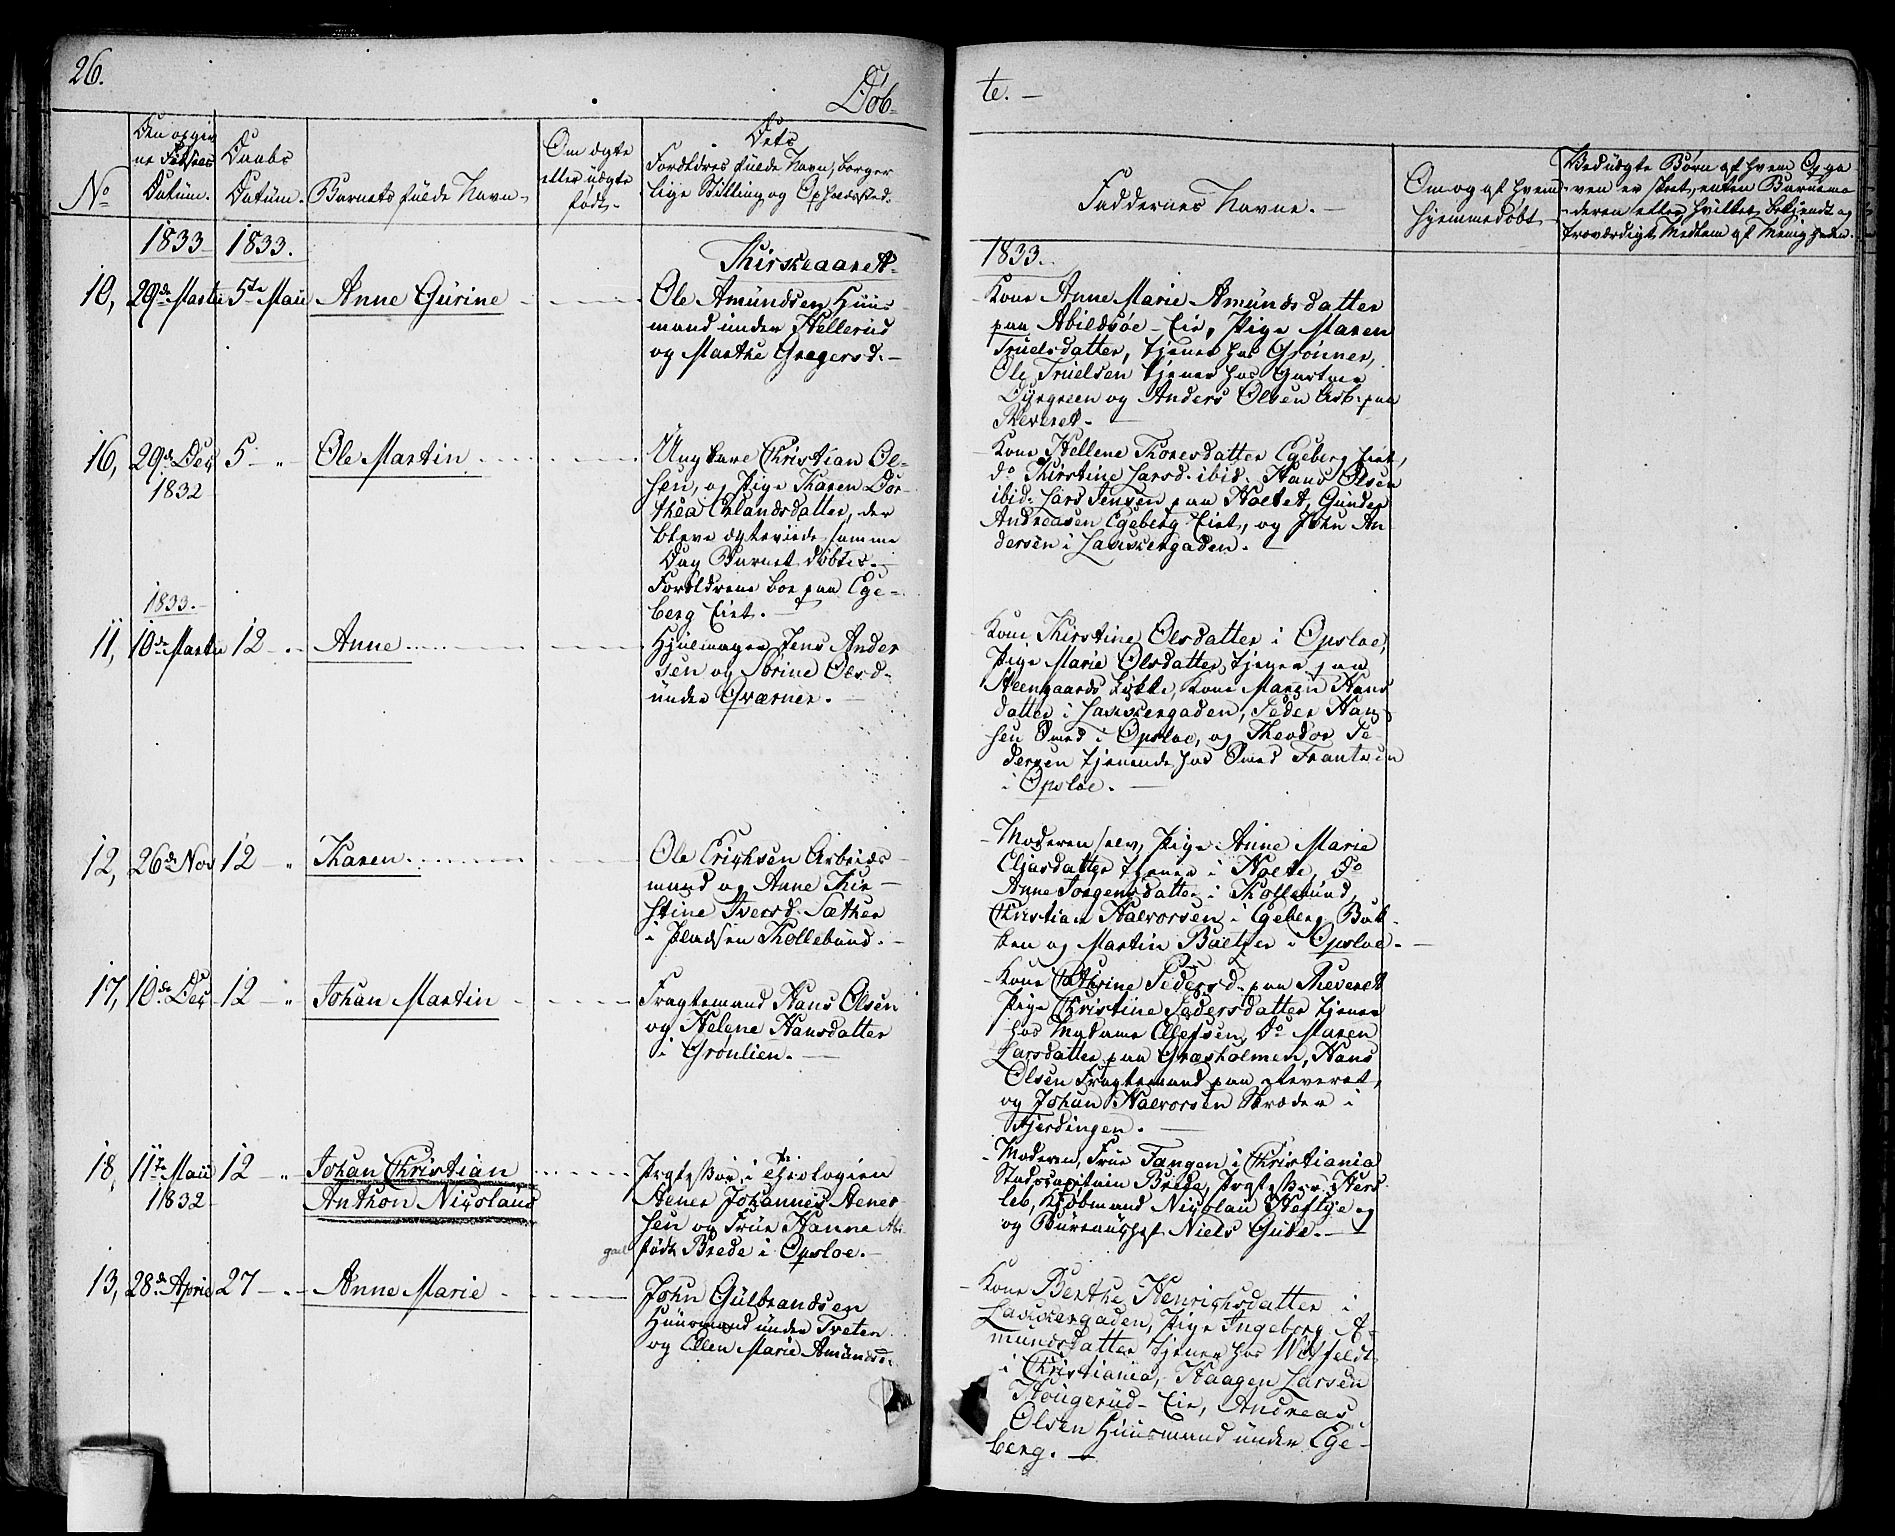 26.
Döb-
te. -
No
Den opgiv
ne Fødsels
Datum.
Daabs
Datum.
Barnets fulde Navn.
Om ægte
eller uægte
født.
Dets
Forældres fulde Navn, borger
lige Stilling og Opholdssted.
Faddernes Navne. -
Om og af hvem
hjemmedøbt
Ved uægte Børn af hvem Opga
ven er skeet, enten Barnemo
deren eller hvilket bekjendt og
troværdigt Medlem af Menigheden.
1833 1833.
1833.
10, 29de Martii 5te Maii Anne Gurine
Ole Amundsen Huus
mand under Hellerud
og Marthe Gregersd. -
Kone Anne Marie Amundsdatter
paa Abildsøe-Eie, Pige Maren
Truelsdatter, tjener hos Grønner,
Ole Truelsen tjener hos Gartner
og Anders Olsen Arb. paa
16, 29de Dec 5 - " Ole Martin
1832
Ungkarl Christian Ol-
sen, og Pige Karen Dor-
thea Erlandsdatter, der
bleve ægteviede samme
Dag Barnet døbtes. -
Forældrene boe paa Ege-
berg Eiet. -
Kone Hellene Thoresdatter Egeberg Eiet,
do Kirstine Larsd. ibid. Hans Olsen
ibid. Lars Jensen paa Hoetet, Gunder
Andreasen Egeberg Eiet, og John An
dersen i Lakkergaden. -
1833. -
11, 10de Martii 12 - " Anne
Hjulmager Jens Ander
sen og Sørine Olsd.
under Qværner. -
Kone Kirstine Olsdatter i Opsloe,
Pige Marie Olsdatter, tjener paa
Steengaards Løkke, Kone Maren Hans
datter i Lakkergaden, Peder Han
sen Smed i Opsloe, og Theodor Pe-
dersen tjenende hos Smed Frantsen
i Opsloe. -
12, 26de Nov 12 - " Karen
Ole Erichsen Arbeids
mand og Anne Kir-
stine Iversd. Sæther
i Pladsen Kollebund. -
- Moderen selv, Pige Anne Marie
Eliasdatter tjener i Hoete, do
Anne Jørgensdatter i Kollebund,
Christian Halvorsen i Egeberg Bak-
ken og Martin Baltzer i Opsloe. -
17, 10de Dec 12 - " Johan Martin
Fragtemand Hans Olsen
og Helene Hansdatter
i Grønlien. -
Kone Cathrine Pedersd. paa
Pige Christine Pedersdatter tjener
hos Madame Ellefsen, Do Maren
Larsdatter paa Græsholmen, Hans
Olsen Fragtemand paa
og Johan Halvorsen Skræder i
Fjerdingen. -
18, 11te Maii 12 - " Johan Christian
1832 Anthon Nicolaus
Prgt. Stør. i Theologien
Aener Johannes Aener
sen og Frue Hanne Abi
gail født Brede i Opsloe. -
- Moderen, Frue Fangen i Christiania
Stadscapitain Brede, Hers
leb, Kjøbmand Nicolai Heftye og
og Bureauchef Niels Gude. -
13, 28de April 27 - " Anne Marie
John Gulbrandsen
Huusmand under Tveten
og Ellen Marie Amundsd.
- Kone Berthe Henrichsdatter i
Lakkergaden, Pige Ingeborg A-
mundsdatter tjener hos
i Christiania, Haagen Larsen
Hougerud-Eie, Andreas
Olsen Huusmand under Ege-
berg. -